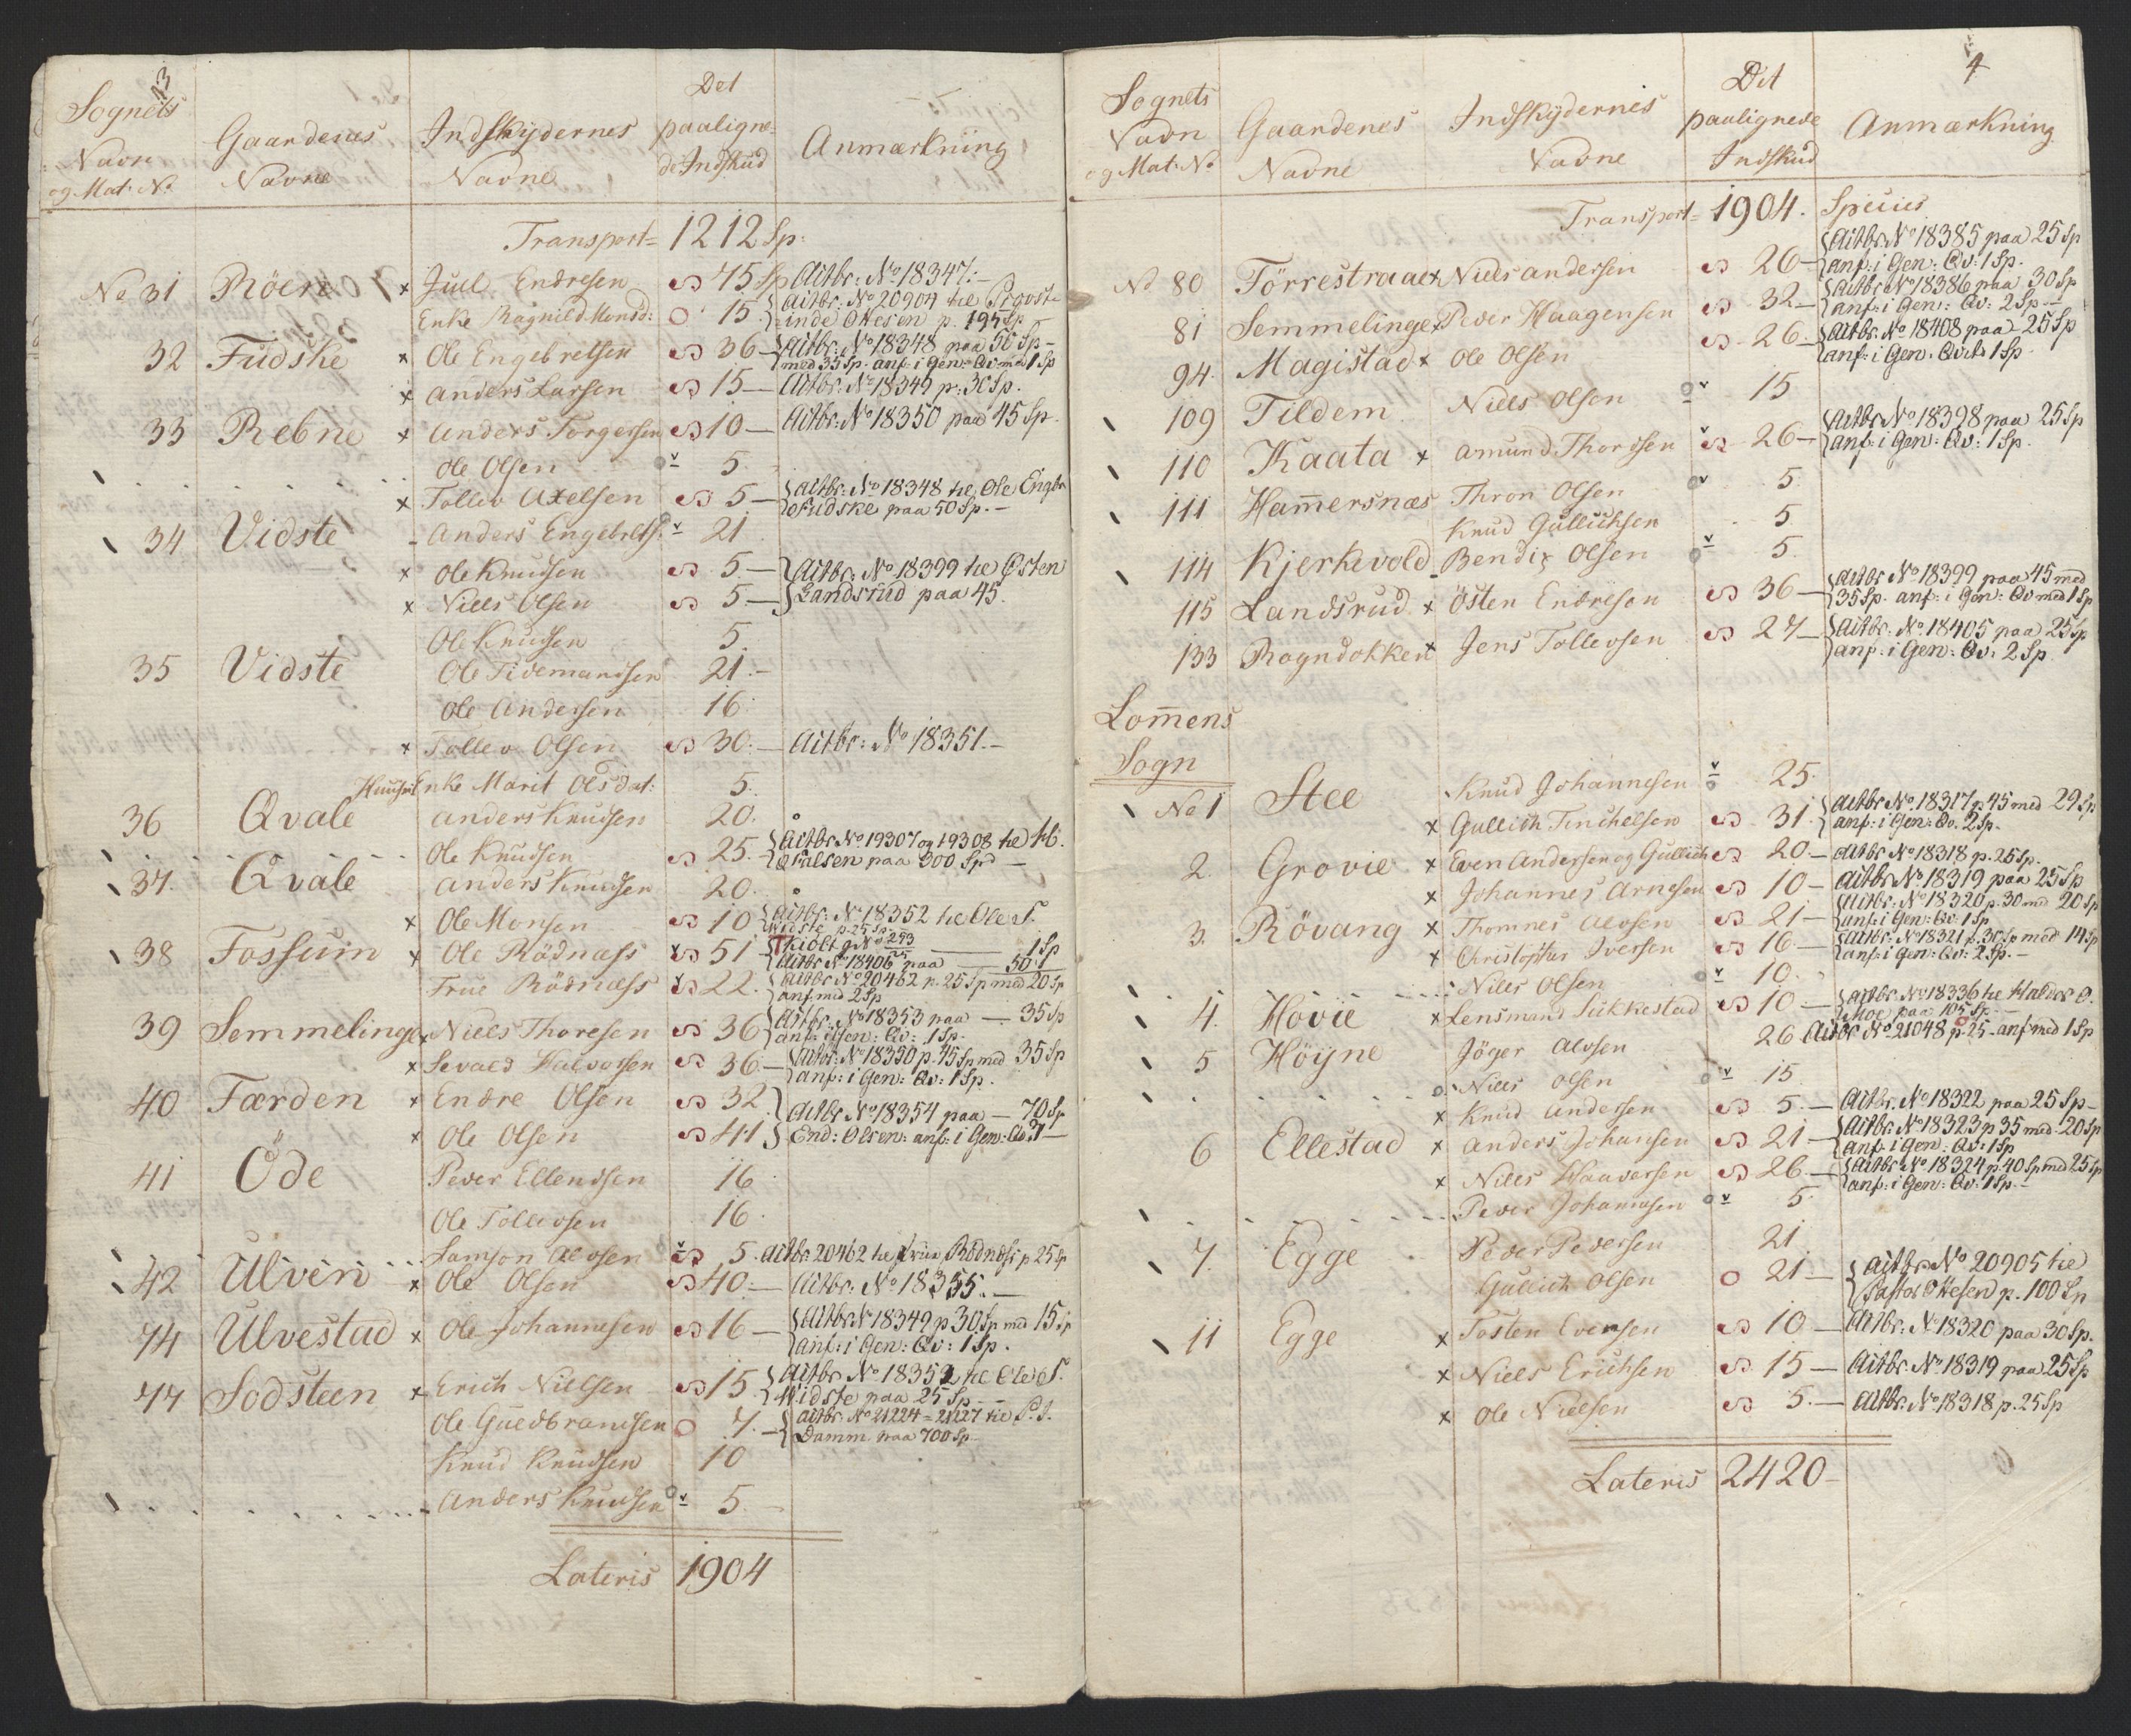 13
Sognets
Navn
og Mat. No.
Gaardenes
Navne
Indskydernes
Navne
Det
paaligne-
de Indskud
Anmærkning
Transport= 1212 Sp:
No 31 Röen x Juul Endresen 45 Sp Aitbr: No 18347.-
Enke Ragnild Monsd: 15. Aitbr. No 20904 til Provst-
inde Ottesen p. 195 Sp.
32 Fudske x Ole Engebretsen 36 - Aitbr: No 18348 paa 50 Sp -
med 35 Sp. anf: i Gen: Qv: med 1 Sp
x Anders Larsen 15 - Aitbr. No 18349 p. 30 Sp.
33 Rebne x Anders Torgersen 10 - Aitbr: No 18350 paa 45 Sp.
Ole Olsen 5.
x Tollev Axelsen 5 - Aitbr: No 18348 til Ole Engbr.
Fudske paa 50 Sp. -
34 Vidste - Anders Engebrets: 21
x Ole Knudsen 5 - Aitbr: No 18399 til Østen
x Niels Olsen 5 - Landsrud paa 45.
Ole Knudsen 5.
35 Vidste Ole Tidemandsen 21.-
Ole Andersen 16.
x Tollev Olsen 30.- Aitbr: No 18351.-
Huusm: Enke Marit Olsdat: 5.
36 Qvale Anders Knudsen 20.
Ole Knudsen 25. Aitbr No 19307 og 19308 til
Falsen paa 900 Spd -
37. Qvale Anders Knudsen 20.
x Ole Monsen 10 Aitbr: No 18352 til Ole T.
Widste p. 25 Sp.-
38 Fossum x Ole Rödnæss 51 Tkiöbt g No 253 — 1 Sp
Aitbr No 18406 paa — 50 -
Frue Rödnæss 22. Aitbr No 20462 p. 25 Sp med 20 Sp
anf med 2 Sp
39 Semmelinge x Niels Thoresen 36 Aitbr. No 18353 paa — 35 Sp
anf: i Gen: Qv: 1 Sp.-
x Sevald Halvorsen 36 - Aitbr: No 18350 p. 45 Sp med 35 Sp
anf: i Gen: Qv: 1 Sp.
40 Færden x Endre Olsen 32. Aitbr No 18354 paa — 70 Sp
x Ole Olsen 41 End: Olsen: anf: i Gen: Qv 3 —
41 Öde Peder Ellendsen 16
Ole Tollevsen 16.
Samson Alvsen 5. Aitbr 20462 til Frue Rödnæss p 25 Sp
42 Ulven x Ole Olsen 40.- Aitbr: No 18355.-
74 Ulvestad x Ole Johannesen 16 - Aitbr No 18349 p 30 Sp med 15 Sp
anf: i Gen: Qv: 1 Sp.
77 Sodsteen x Erich Nielsen 15. Aitbr No 18352 til Ole T.
Widste paa 25 Sp. -
Ole Guedbrandsen 7.- Aitbr No 21224 = 21227 til P. J.
Damm paa 700 Sp
Knud Knudsen 10
Anders Knudsen 5.
Lateris 1904
4
Sognets
Navn
og Mat. No
Gaardenes
Navne
Indskydernes
Navne
Det
paalignede
Indskud
Anmærkning
Transport= 1904. Species
No 80 Törrestraae x Niels Andersen 26 - Aitbr No 18385 paa 25 Sp
anf: i Gen: Qv: 1 Sp.
81 Semmelinge x Peder Haagensen 32 - Aitbr No 18386 paa 30 Sp
anf: i Gen: Qv: 2 Sp.-
94. Magistad x Ole Olsen 26. Aitbr. No 18408 paa 25 Sp
anf: i Gen: Qvit: 1 Sp.
109 Tildem Niels Olsen 15
110 Kaata x Amund Thordsen 26 - Aitbr No 18398 paa 25 Sp
anf: i Gen: Qv: 1 Sp.
111 Ham̅ersnæs Thron Olsen 5.
Knud Gullichsen 5.
114 Kjerkevold Bendix Olsen 5.
115 Landsrud x Östen Endreson 36 - Aitbr No 18399 paa 45 med
35 Sp. anf: i Gen: Qv med 1 Sp
133 Rogndokken x Jens Tollevsen 27 - Aitbr: No 18405 paa 25 Sp
anf: i Gen: Qv: 2 Sp.
Lom̅ens
Sogn
No 1 Stee Knud Johannesen 25.
x Gullich Finchelsen 31. Aitbr No 18317 p. 45 med 29 Sp
anf: i Gen: Qv. 2 Sp.
2. Grovie x Even Andersen og Gullich 20.- Aitbr No 18318 p. 25 Sp.
x Johannes Arnesen 10 - Aitbr No 18319 paa 25 Sp
3. Rövang x Thomnes Alvsen 21 - Aitbr: No 18320 p. 30 med 20 Sp
anf: i Gen: Qv: 1 Sp
x Christopher Iversen 16 - Aitbr: No 18321 p. 30 Sp med 14 Sp
anf: i Gen: Qv: 2 Sp.-
Niels Olsen 10.
4. Hövie x Lensmand Sukkestad 10 - Aitbr. No 18336 til Haldor O.
Moe paa 105 Sp.-
5 Höyne Jöger Alvsen 26 Aitbr No 21048 p 25 - anf med 1 Sp
Niels Olsen 15
x Knud Andersen 5.- Aitbr. No 18322 paa 25 Sp -
6 Ellestad x Anders Johansen 21 - Aitbr No 18323 p 35 med 20 Sp
anf: i Gen: Qv: 1 Sp
x Niels Haaversen 26 - Aitbr: No 18324 p. 40 Sp med 25 Sp
anf: i Gen: Qv: 1 Sp.-
Peder Johannesen 5
7. Egge Peder Pedersen 21
Gullich Olsen 21 - Aitbr No 20905 til
Pastor Ottesen p. 100 Sp
11 Egge x Tosten Evensen 10 - Aitbr: No 18320 paa 30 Sp.
x Niels Erichsen 15 - Aitbr. No 18319 paa 25 Sp
x Ole Nielsen 5.- Aitbr. No 18318 p. 25 Sp
Lateris 2420-